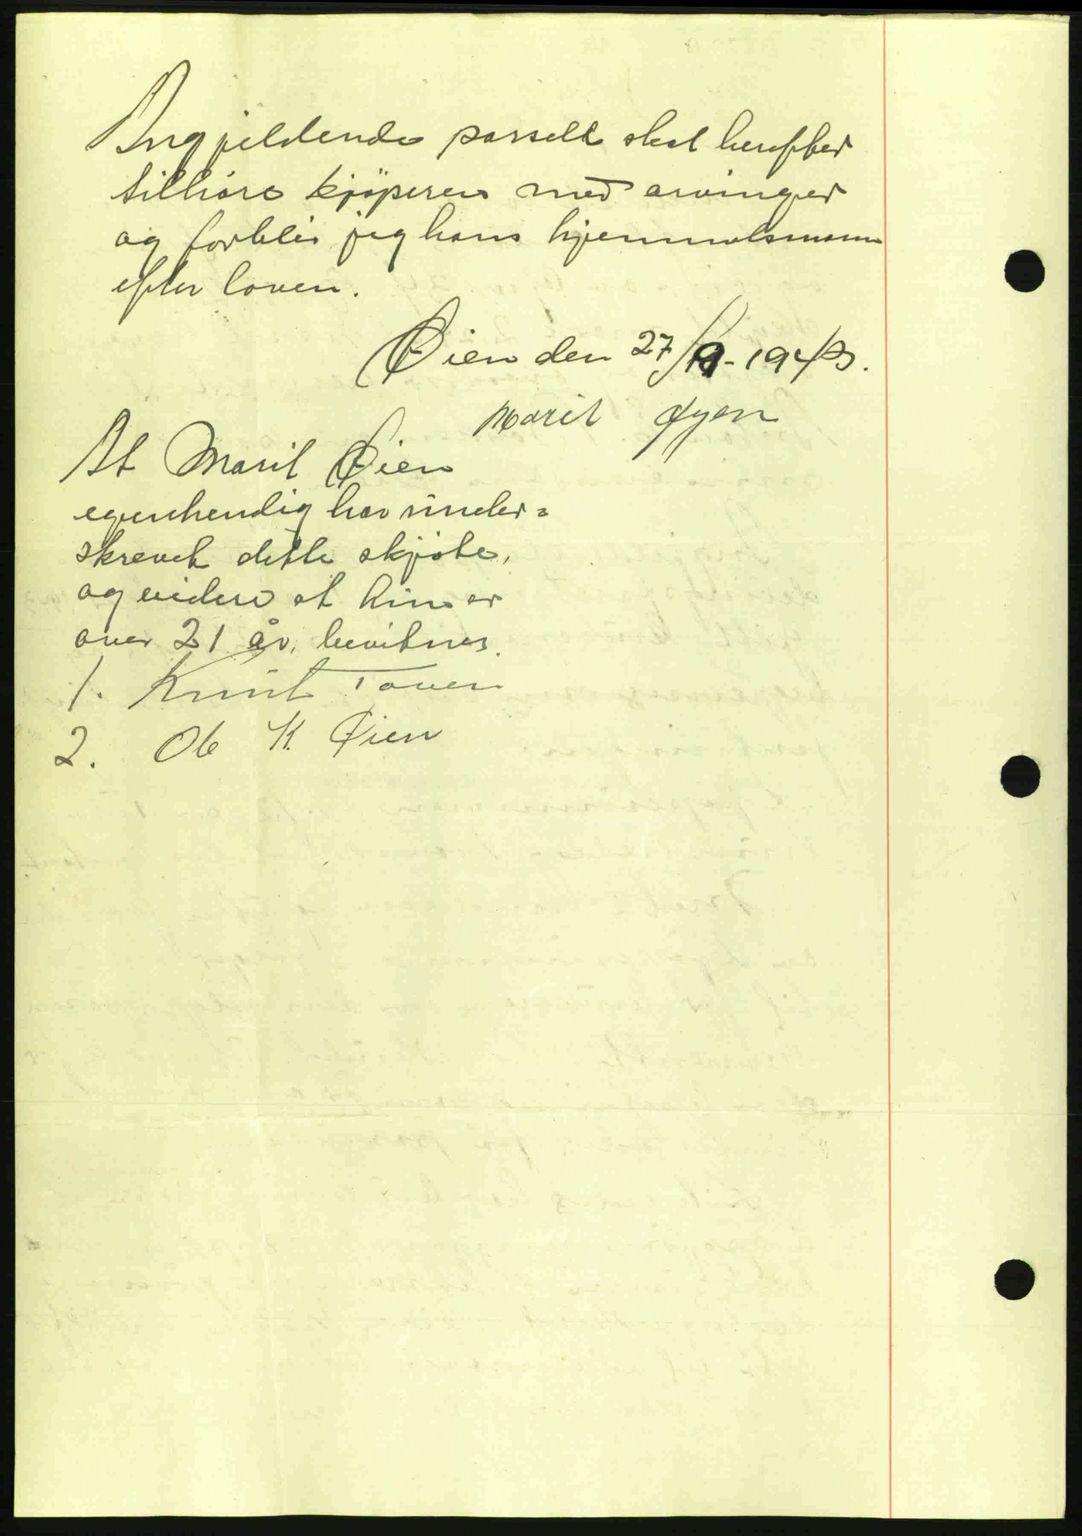 Angjeldende parsell skal herefter
tilhøre kjøperen med arvinger
og forblir jeg hans hjemmelsmann
efter loven.
Øien den 27/9-1943.
Marit Øyen
At Marit Øien
egenhendig har under=
skrevet dette skjøte,
og videre at hun er
over 21 år, bevitnes.
1. Knut Toven
2. Ole K Øien